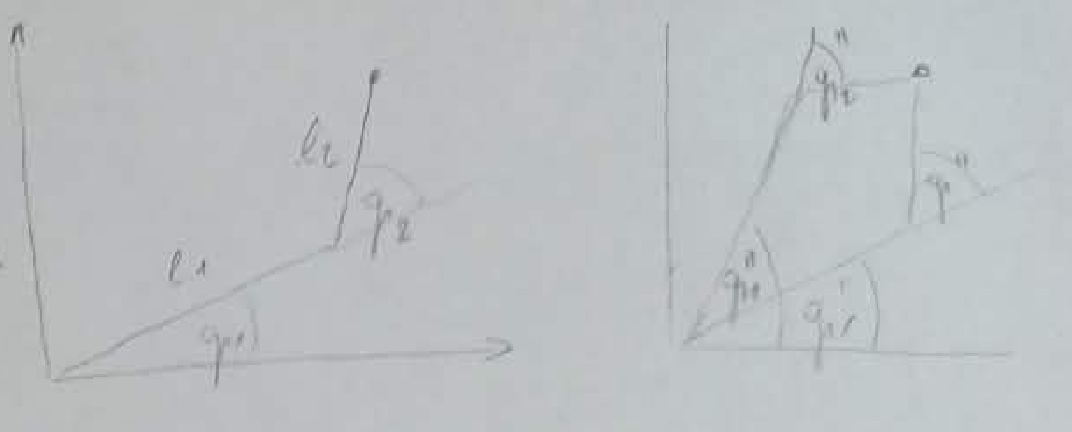 l2
q2
l1
q1
q2"
q"
q1"
q1'